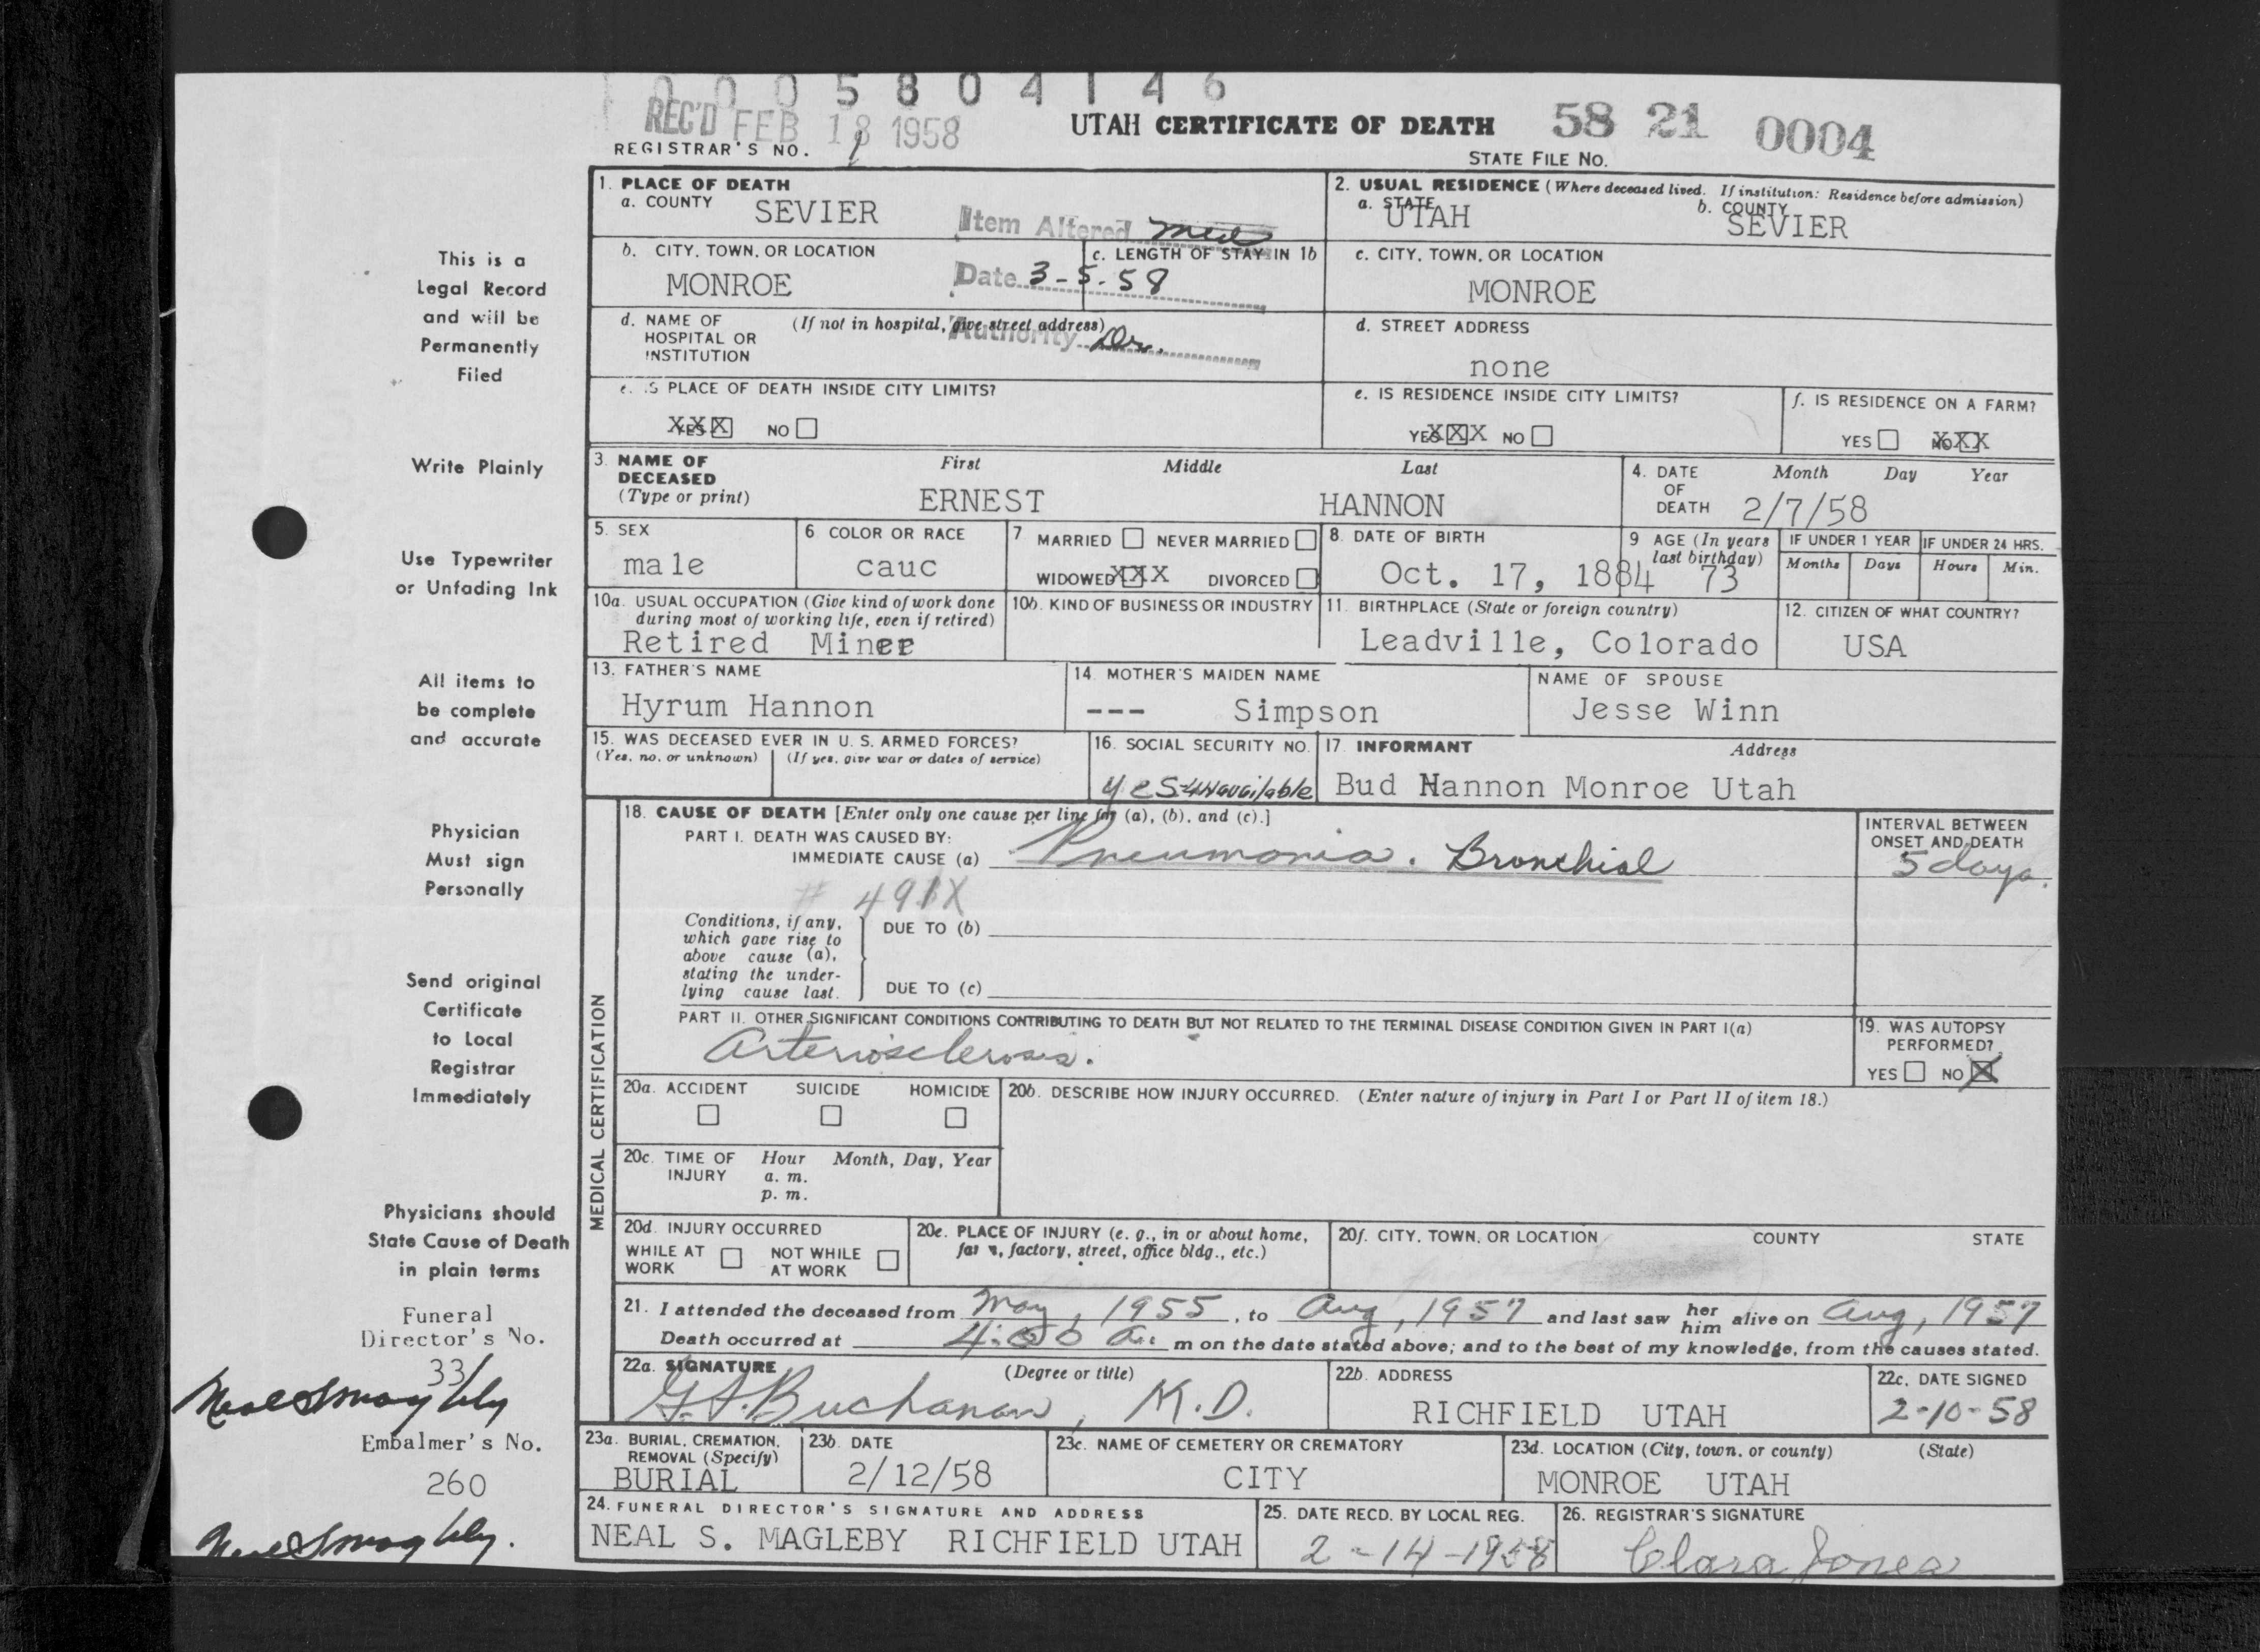 0 0 0 5 8 0 4 1 4 6
REC'D FEB 18 1958
UTAH CERTIFICATE OF DEATH
58 21 0004
REGISTRAR'S NO. 1
STATE FILE NO.
1. PLACE OF DEATH
a. COUNTY SEVIER
Item Altered
2. USUAL RESIDENCE (Where deceased lived. If institution: Residence before admission)
a. STATE UTAH
b. COUNTY SEVIER
b. CITY, TOWN, OR LOCATION
MONROE
c. LENGTH OF STAY IN 1b
Date 3-5-58
c. CITY, TOWN, OR LOCATION
MONROE
d. NAME OF HOSPITAL OR INSTITUTION
(If not in hospital, give street address)
Authority Dr.
d. STREET ADDRESS
none
e. IS PLACE OF DEATH INSIDE CITY LIMITS?
YES XXX NO
e. IS RESIDENCE INSIDE CITY LIMITS?
YES XXX NO
f. IS RESIDENCE ON A FARM?
YES NO XXX
3. NAME OF DECEASED
(Type or print)
First Middle Last
ERNEST HANNON
4. DATE OF DEATH
Month Day Year
2/7/58
5. SEX
male
6 COLOR OR RACE
cauc
7 MARRIED NEVER MARRIED
WIDOWED XXX DIVORCED
8. DATE OF BIRTH
Oct. 17, 1884
9 AGE (In years last birthday)
73
IF UNDER 1 YEAR
Months Days
IF UNDER 24 HRS.
Hours Min.
10a. USUAL OCCUPATION (Give kind of work done during most of working life, even if retired)
Retired Miner
10b. KIND OF BUSINESS OR INDUSTRY
11. BIRTHPLACE (State or foreign country)
Leadville, Colorado
12. CITIZEN OF WHAT COUNTRY?
USA
13. FATHER'S NAME
Hyrum Hannon
14. MOTHER'S MAIDEN NAME
--- Simpson
NAME OF SPOUSE
Jesse Winn
15. WAS DECEASED EVER IN U. S. ARMED FORCES?
(Yes, no, or unknown) (If yes, give war or dates of service)
16. SOCIAL SECURITY NO.
yes-unavailable
17. INFORMANT Address
Bud Hannon Monroe Utah
MEDICAL CERTIFICATION
18. CAUSE OF DEATH [Enter only one cause per line for (a), (b), and (c).]
PART I. DEATH WAS CAUSED BY:
IMMEDIATE CAUSE (a) Pneumonia. Bronchial
# 491X
INTERVAL BETWEEN ONSET AND DEATH
5 days.
Conditions, if any, which gave rise to above cause (a), stating the underlying cause last.
DUE TO (b)
DUE TO (c)
PART II. OTHER SIGNIFICANT CONDITIONS CONTRIBUTING TO DEATH BUT NOT RELATED TO THE TERMINAL DISEASE CONDITION GIVEN IN PART I(a)
Arteriosclerosis.
19. WAS AUTOPSY PERFORMED?
YES NO X
20a. ACCIDENT SUICIDE HOMICIDE
20b. DESCRIBE HOW INJURY OCCURRED. (Enter nature of injury in Part I or Part II of item 18.)
20c. TIME OF INJURY
Hour Month, Day, Year
a. m.
p. m.
20d. INJURY OCCURRED
WHILE AT WORK NOT WHILE AT WORK
20e. PLACE OF INJURY (e. g., in or about home, farm, factory, street, office bldg., etc.)
20f. CITY, TOWN, OR LOCATION COUNTY STATE
21. I attended the deceased from May, 1955, to Aug, 1957 and last saw her him alive on Aug, 1957
Death occurred at 4:00 a. m on the date stated above; and to the best of my knowledge, from the causes stated.
22a. SIGNATURE (Degree or title)
G.S. Buchanan, M.D.
22b. ADDRESS
RICHFIELD UTAH
22c. DATE SIGNED
2-10-58
23a. BURIAL, CREMATION, REMOVAL (Specify)
BURIAL
23b. DATE
2/12/58
23c. NAME OF CEMETERY OR CREMATORY
CITY
23d. LOCATION (City, town, or county) (State)
MONROE UTAH
24. FUNERAL DIRECTOR'S SIGNATURE AND ADDRESS
NEAL S. MAGLEBY RICHFIELD UTAH
25. DATE RECD. BY LOCAL REG.
2-14-1958
26. REGISTRAR'S SIGNATURE
Clara Jones
This is a
Legal Record
and will be
Permanently
Filed
Write Plainly
Use Typewriter
or Unfading Ink
All items to
be complete
and accurate
Physician
Must sign
Personally
Send original
Certificate
to Local
Registrar
Immediately
Physicians should
State Cause of Death
in plain terms
Funeral
Director's No.
331
Neal S Magleby
Embalmer's No.
260
Neal S Magleby.